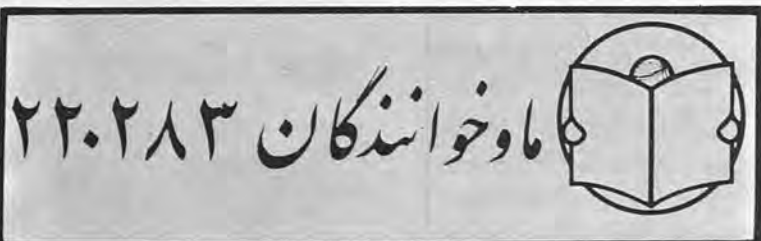 ما و خوانندگان ۲۲۰۲۸۳